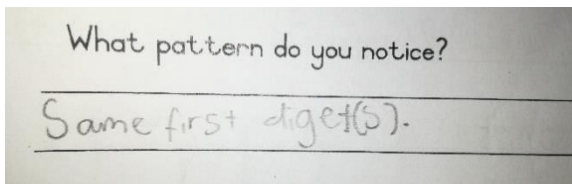 What pattern do you notice?
Same first diget(s).